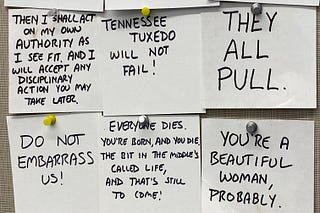 THEN I SHALL ACT
ON MY OWN
AUTHORITY AS
I SEE FIT, AND I
WILL ACCEPT ANY
DISCIPLINARY
ACTION YOU MAY
TAKE LATER.
TENNESSEE
TUXEDO
WILL NOT
FAIL!
THEY
ALL
PULL.
DO NOT
EMBARRASS
US!
EVERYONE DIES.
YOU'RE BORN, AND YOU DIE.
THE BIT IN THE MIDDLE'S
CALLED LIFE,
AND THAT'S STILL
TO COME!
YOU'RE A
BEAUTIFUL
WOMAN,
PROBABLY.